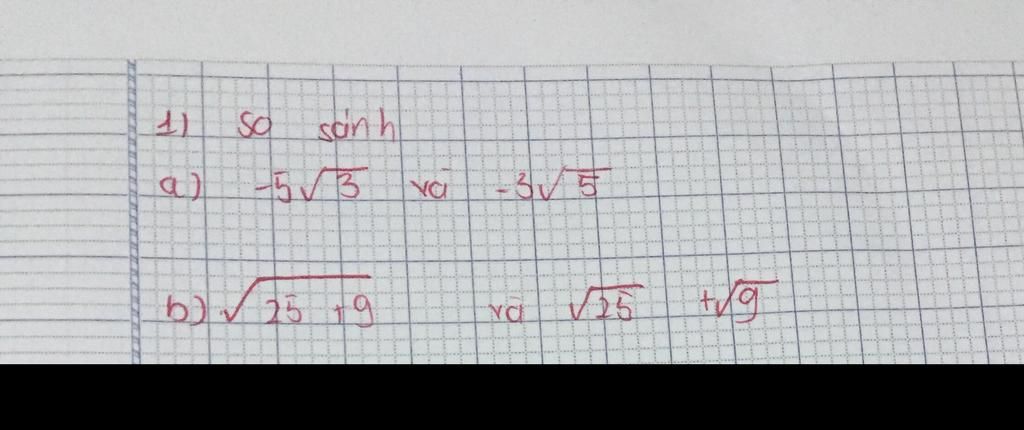 1) so sánh
a) -5√3 và -3√5
b) √(25 + 9) và √25 + √9